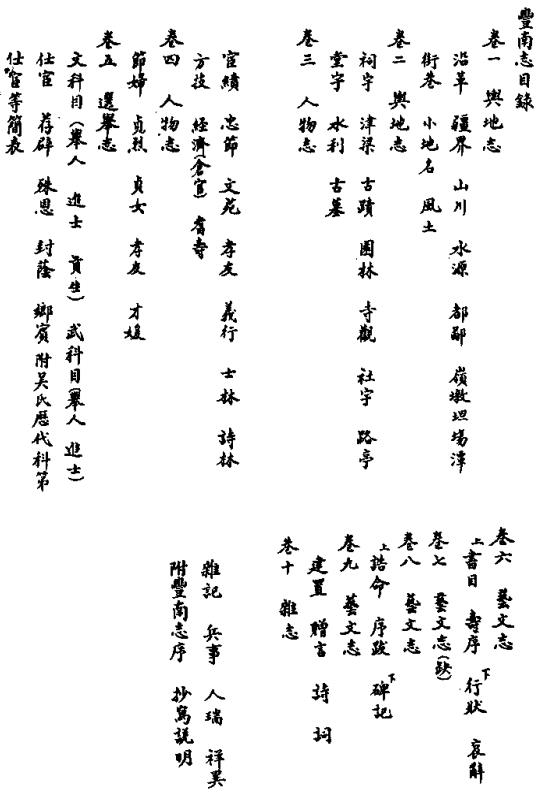 豐南志目錄
卷一 輿地志
沿革 疆界 山川 水源 都鄙 嶺墩坦塲潭
街巷 小地名 風土
卷二 輿地志
祠宇 津梁 古蹟 園林 寺觀 社宇 路亭
堂宇 水利 古墓
卷三 人物志
宦績 忠節 文苑 孝友 義行 士林 詩林
方技 經濟(倉官) 耆壽
卷四 人物志
節婦 貞烈 貞女 孝友 才媛
卷五 選舉志
文科目(舉人 進士 貢生) 武科目(舉人 進士)
仕宦 荐辟 殊恩 封蔭 鄉賓 附吴氏歷代科第
仕宦等簡表
卷六 藝文志
上書目 壽序 下行狀 哀辭
卷七 藝文志(缺)
卷八 藝文志
上誥命 序跋 下碑記
卷九 藝文志
建置 贈言 詩 詞
卷十 雜志
雜記 兵事 人瑞 祥異
附豐南志序 抄寫説明